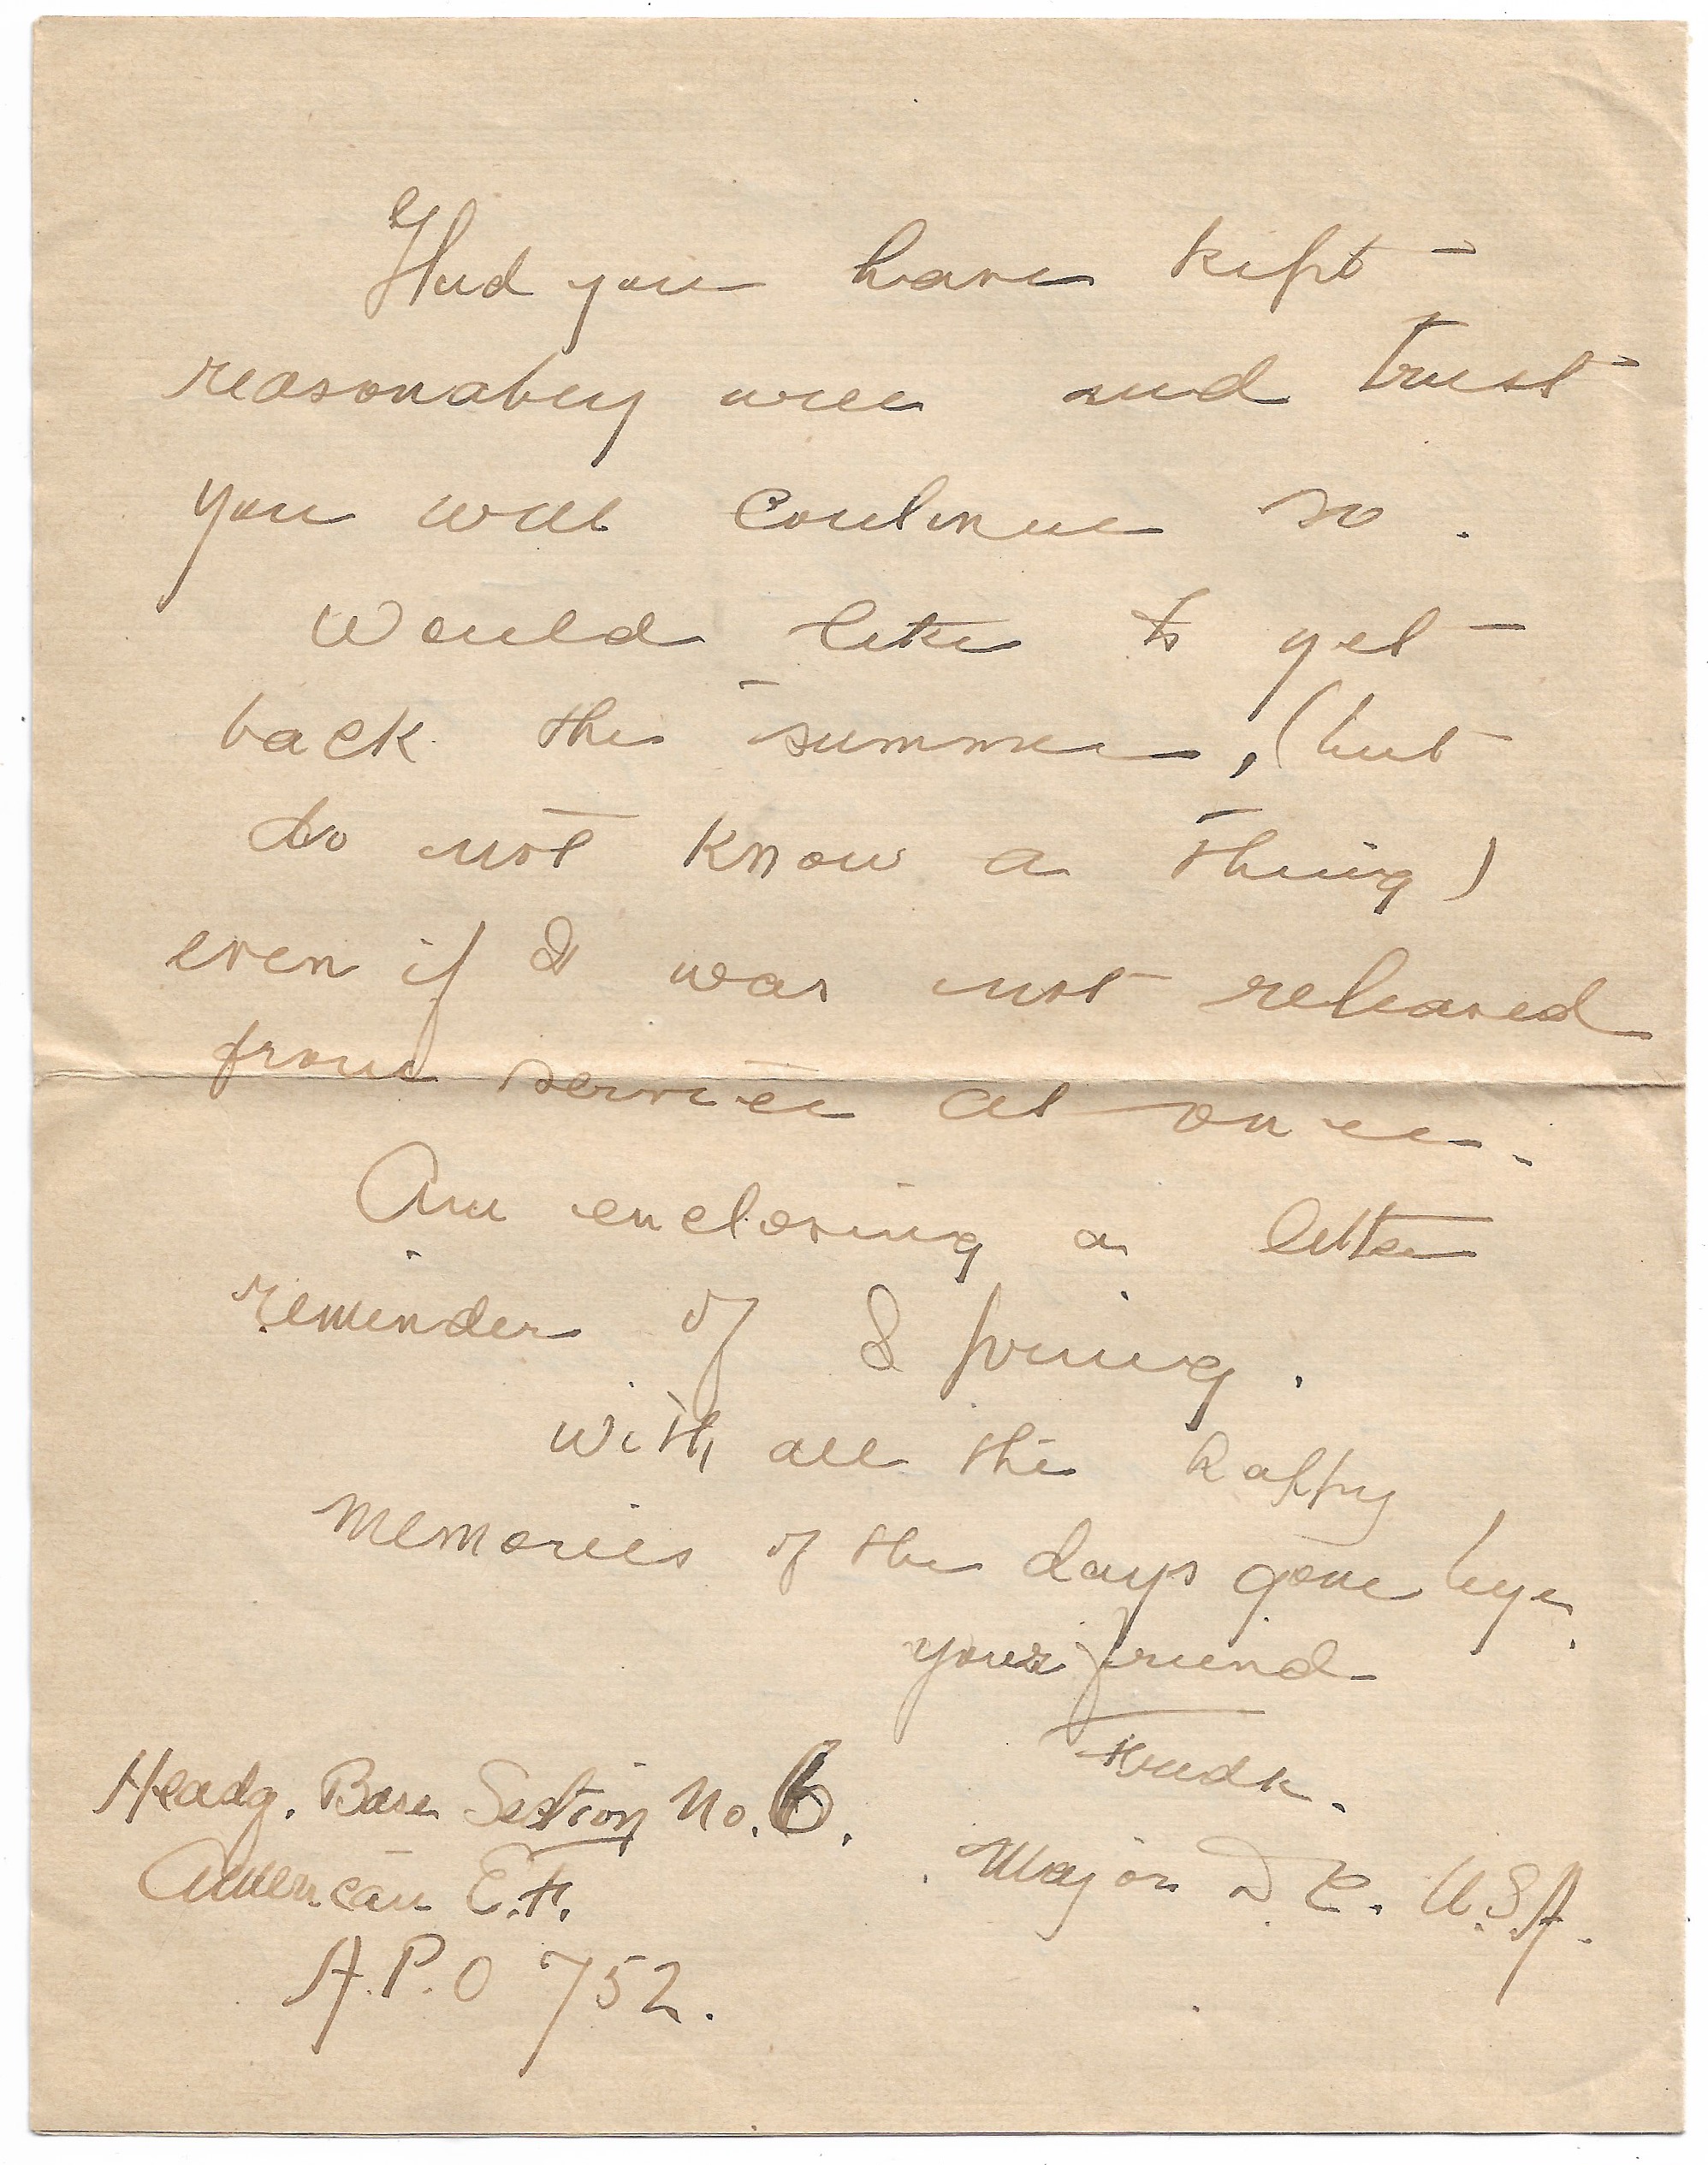 Glad you have kept
reasonably well and trust
you will continue so.
Would like to get
back this summer, (but
do not know a thing)
even if I was not released
from service at once.
Am enclosing a little
reminder of Spring.
With all the happy
memories of the days gone bye.
your friend
Headq. Base Section No. 6.
American E.F.
A.P.O 752.
Major D.C. U.S.A.